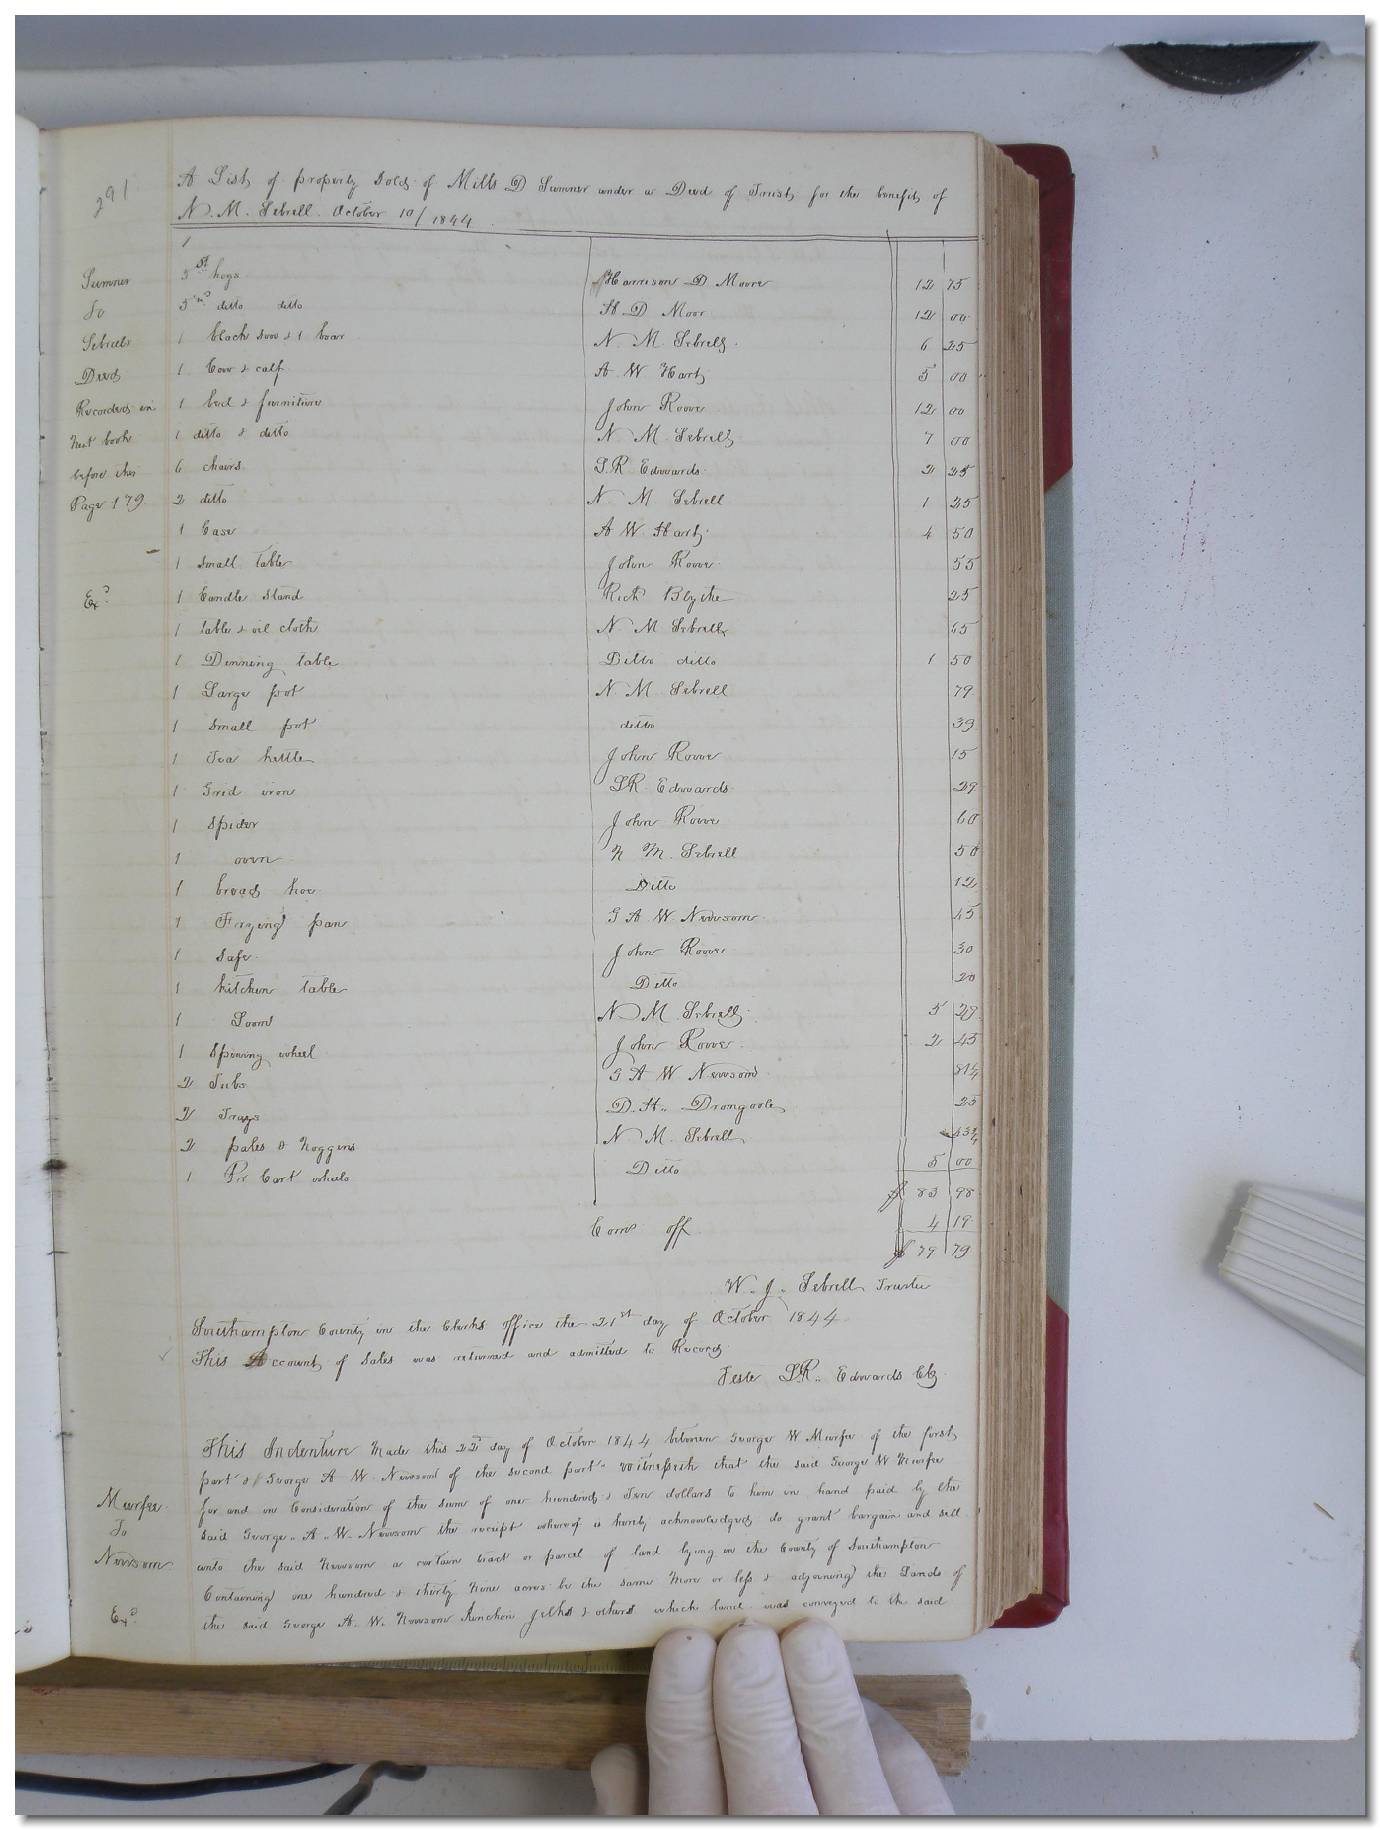 291
A List of property Sold of Mills D Sumner under a Deed of Trust for the benefit of
N. M. Sebrell October 10/1844
Sumner
To
Sebrell
Deed
Recorded in
next book
before this
Page 179
Exd
5 1st hogs Harrison D Moore 12 75
5 2nd ditto ditto H D Moor 12 00
1 black sow & 1 boar N. M. Sebrell 6 25
1 Cow & calf A W Hart 5 00
1 bed & furniture John Roover 12 00
1 ditto & ditto N M Sebrell 7 00
6 chairs L R Edwards 2 25
2 ditto N M Sebrell 1 25
1 Case A W Hart 4 50
1 Small table John Roover 55
1 Candle Stand Rich Blythe 25
1 table & oil cloth N M Sebrell
1 Dinning table Ditto ditto 1 50
1 Large pot N M Sebrell 79
1 Small pot ditto 39
1 Tea kettle John Roover 15
1 Grid iron LR Edwards 29
1 Spider John Roover 60
1 oven N M. Sebrell 50
1 broad hoe Ditto 12
1 Frying pan G A W Newsom 45
1 Safe John Roover 30
1 kitchen table Ditto 20
1 Loom N M Sebrell 5
1 Spining wheel John Roover 2 45
2 Tubs G A W Newsom
2 Trays D. H. Drongoole 25
2 pales & Noggins N M. Sebrell
1 Pr Cart wheels Ditto 5 00
$ 83 98
Coms off 4 19
$ 79 79
W. J. Sebrell Trustee
Southampton County in the Clerks office the 21st day of October 1844
This Account of Sales was returned and admitted to Record
Teste L R. Edwards Clk
Murfee
To
Newsom
Exd
This Indenture Made this 22d day of October 1844 between George W Murfee of the first
part & George A W. Newsom of the second part witnesseth that the said George W Murfee
for and in Consideration of the sum of one hundred & Ten dollars to him in hand paid by the
said George. A. W. Newsom the receipt whereof is hereby acknowledged do grant bargain and sell
unto the said Newsom a certain tract or parcel of land lying in the County of Southampton
Containing one hundred & thirty Nine acres be the same More or less & adjoining the Lands of
the said George A. W. Newsom & others which land was conveyed to the said